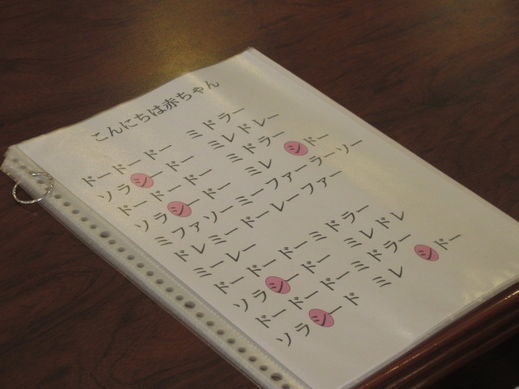 こんにちは赤ちゃん
ドードードー　ミドラー
ソラシードー　ミレドレー
ドードードー　ミドラー
ソラシードー　ミレ　シドー
ミファソーミーファーラーソー
ドレミードーレーファー
ミーレー
ドードードーミドラー
ソラシードー　ミレドレ
ドードードーミドラー
ソラシード　ミレ　シドー